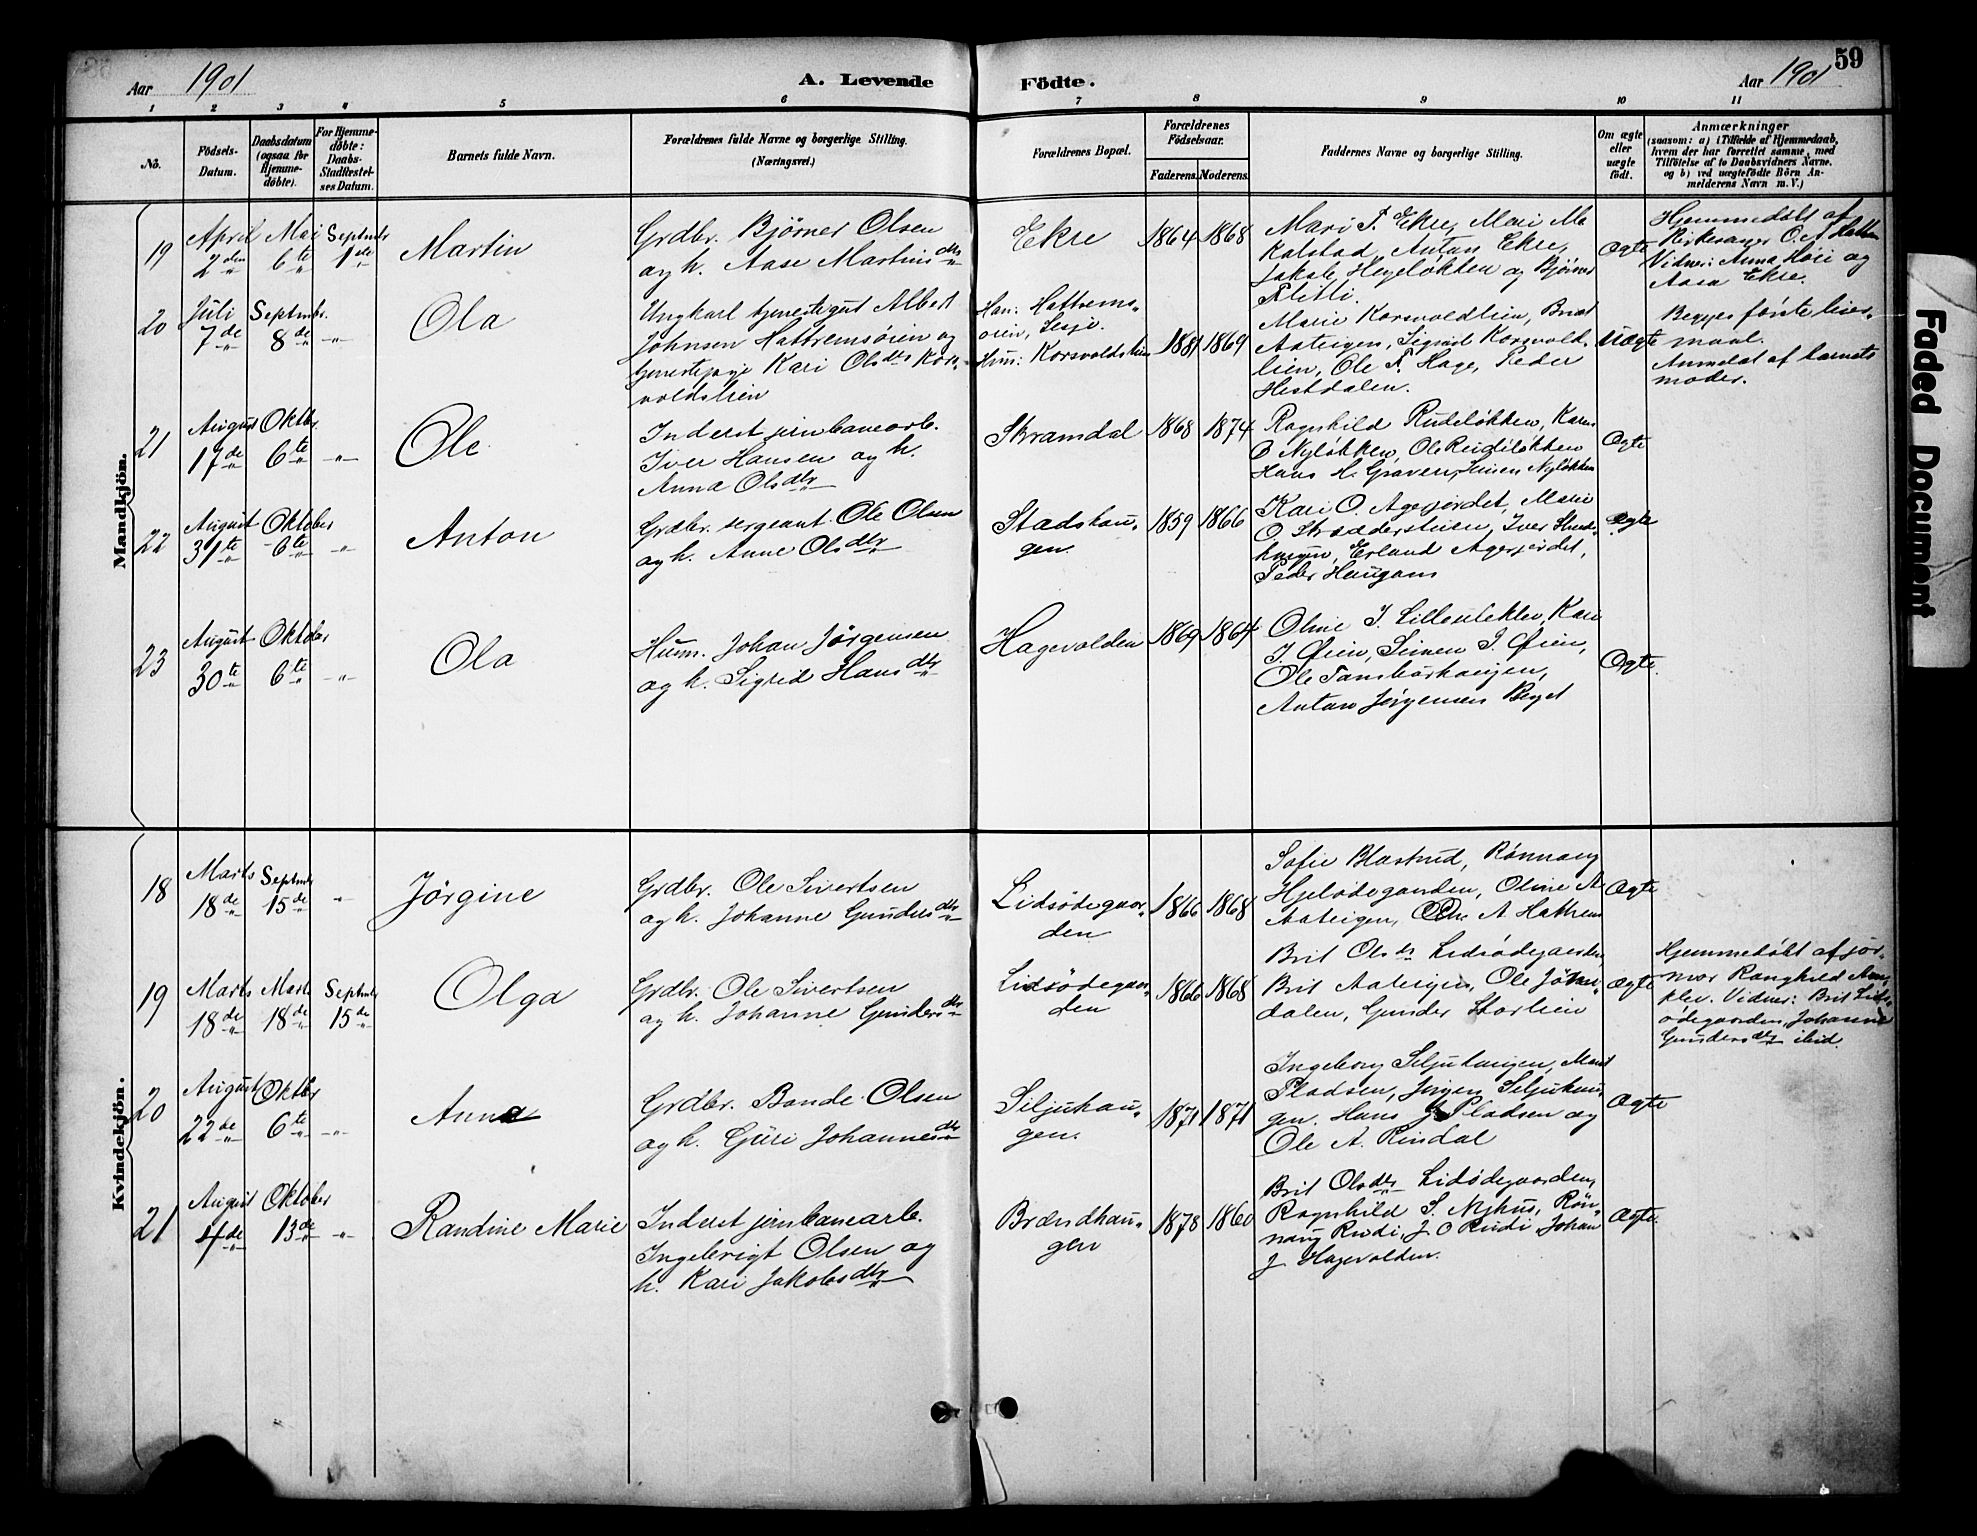 59
Aar 1901
A. Levende
Födte.
Aar 1901
1 2 3 4 5 6 7 8 9 10 11
No.
Födsels-
Datum.
Daabsdatum
(ogsaa for
Hjemme-
döbte).
For Hjemme-
döbte:
Daabs-
Stadfæstel-
ses Datum.
Barnets fulde Navn.
Forældrenes fulde Navne og borgerlige Stilling.
(Næringsvei.)
Forældrenes Bopæl.
Forældrenes
Födselsaar.
Faderens. Moderens.
Faddernes Navne og borgerlige Stilling.
Om ægte
eller
uægte
födt.
Anmærkninger
(saasom: a) i Tilfælde af Hjemmedaab,
hvem der har forrettet samme, med
Tilföielse af to Daabsvidners Navne,
og b) ved uægtefödte Börn An-
melderens Navn m. V.)
Mandkjön.
19
April
2den
Mai
6te
Septmbr
1ste
Martin
Grdbr. Bjørner Olsen
og h. Aase Martinsdtr
Ekre
1864 1868
Mari T. Ekre, Mari M
Kalstad, Anton Ekre,
Jakob Hegeløkken og Bjørner
Flitti.
Ægte
Hjemmedøbt af
Kirkesanger O. A.
Vidner: Anna Høie og
Aasa Ekre.
20
Juli
7de
Septmbr.
8de
"
Ola
Ungkarl tjenestegut Albert
Johnsen Hattremsøien og
tjenestepige Kari Olsdtr Kors-
voldslien
Han: Hattrems-
øien, Lesje.
Hun: Korsvoldslien
1881 1869
Marie Korsvoldlien, Brit
Aateigen, Sigrid Korsvold-
lien, Ole T. Hage, Peder
Hestdalen.
Uægte
Begges første leier-
maal.
Anmeldt af barnets
moder.
21
August
17de
Oktbr.
6te
"
Ole
Inderst jernbanearb.
Iver Hansen og h.
Anna Olsdtr
Skramdal
1868 1874
Ragnhild Rudeløkken, Karen
O Nyløkken, Ole Rudeløkken
Hans H. Graven, Nyløkken
Ægte
22
August
31te
Oktober
6te
"
Anton
Grdbr. sergeant Ole Olsen
og h. Anne Olsdtr
Stadshau-
gen.
1859 1866
Kari O. Agerjordet, Marie
O. Iver
haugen, Erland Agerjordet,
Peder Haugans
Ægte
23
August
30te
Oktober
6te
"
Ola
Husm. Johan Jørgensen
og h. Sigrid Hansdtr
Hagevolden
1869 1864
Oline J. Kari
J. Øien, Simen J. Øien,
Ole Tamburhaugen,
Anton Jørgensen
Ægte.
Kvindekjön.
18
Marts
18de
Septmbr
15de
"
Jørgine
Grdbr. Ole Sivertsen
og h. Johanne Gundersdtr
Lidsødegaar-
den
1866 1868
Sofie Blæstrud, Rønnaug
Hjelødegarden, Oline A
Aateigen, Ole A Hattrem
Ægte
19
Marts
18de
Marts
18de
Septmbr
15de
Olga
Grdbr. Ole Sivertsen
og h. Johanne Gundersdtr
Lidsødegaar-
den
1866 1868
Brit Olsdtr Lidsødegaarden,
Brit Aateigen, Ole Jøtun-
dalen, Gunder Storlien
Ægte
Hjemmedøbt af jor-
mor Ranghild
klev. Vidner: Brit Lids-
ødegaarden, Johanne
Gundersdtr ibid.
20
August
22de
Oktbr
6te
"
Anna
Grdbr. Bonde Olsen
og h. Guri Johannesdtr
Siljuhau-
gen.
1871 1871
Ingeborg Siljuhaugen, Marit
Pladsen, Jørgen Siljuhau-
gen. Hans J Pladsen og
Ole A. Rindal
Ægte
21
August
4de
Oktober
13de
"
Randine Marie
Inderst jernbanearb.
Ingebrigt Olsen og
h. Kari Jakobsdtr
Brændhau-
gen
1878 1860
Brit Olsdtr Lidsødegaarden,
Ragnhild S. Nyhus, Røn-
naug Rudi, J O Rudi, Johan
J Hagevolden.
Ægte.
Faded Document